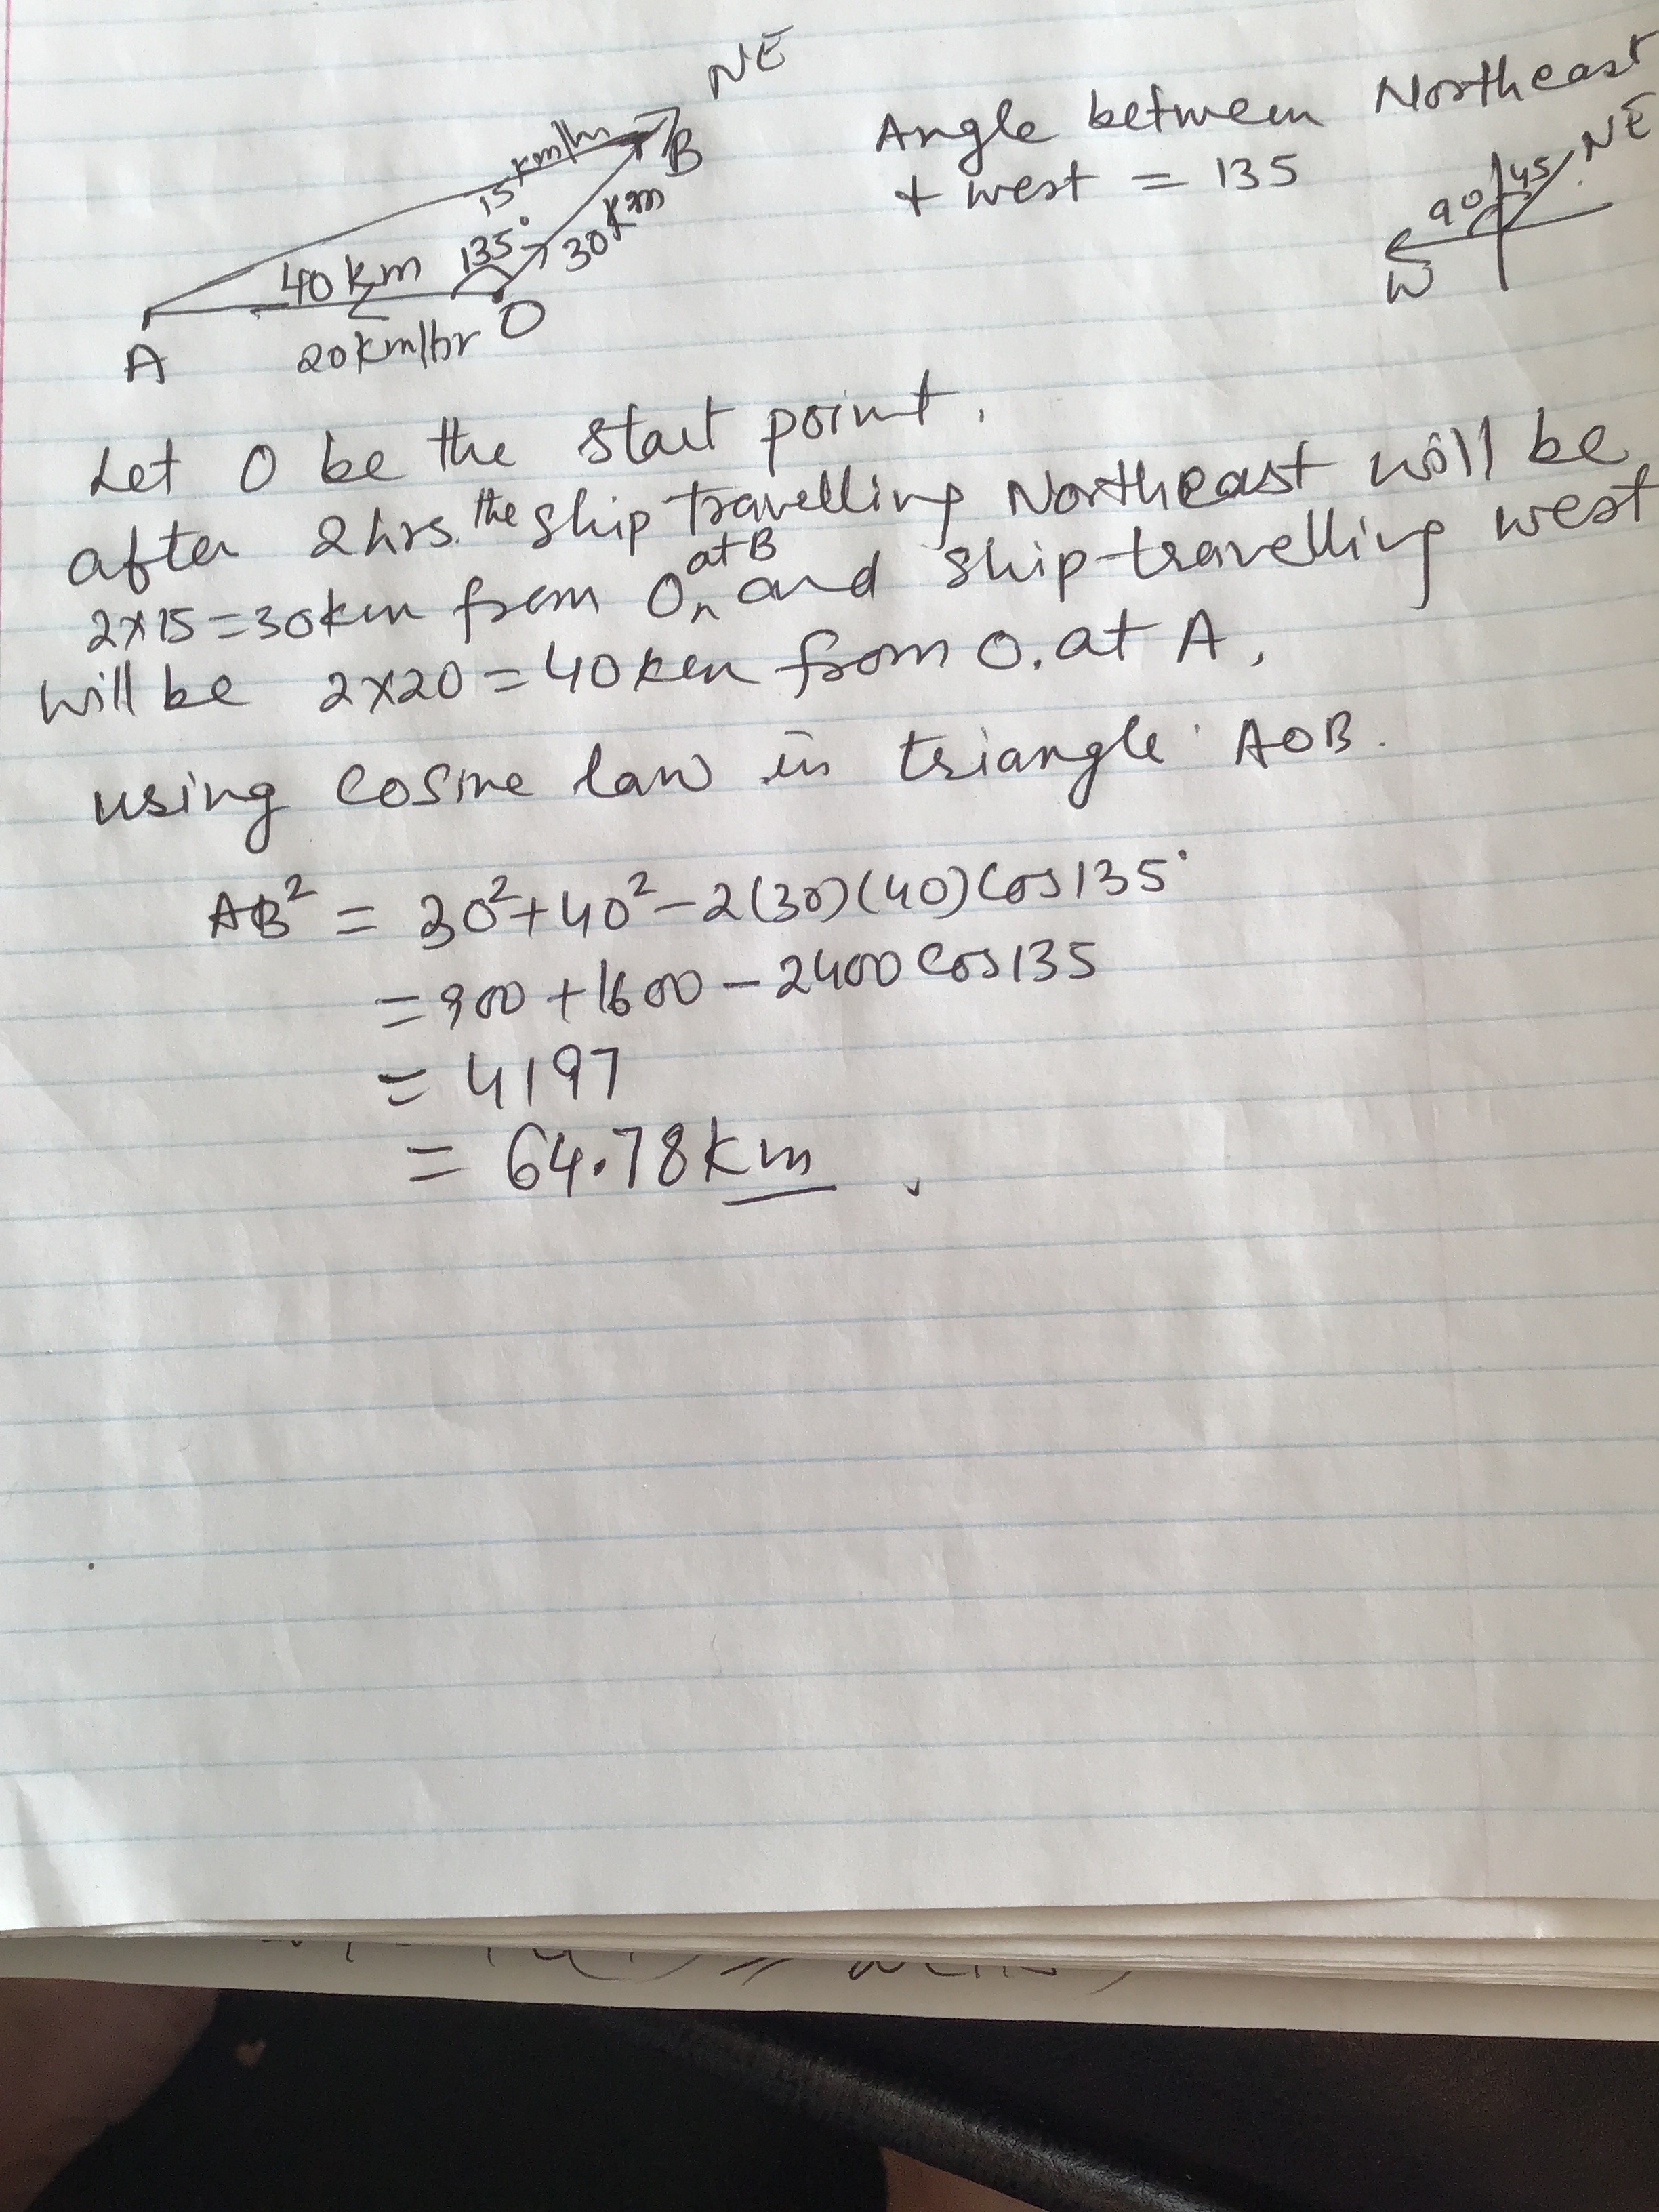 NE
15 km/hr
B
40 km
135°
30 km
A
20 km/hr
O
Angle between Northeast
+ west = 135
90
45
NE
W
Let O be the start point.
after 2 hrs. the ship travelling Northeast will be
2×15=30km from O, at B and ship travelling west
will be 2×20=40km from O. at A.
using cosine law in triangle AOB.
AB² = 30²+40²-2(30)(40)Cos135°
=900+1600-2400 Cos135
= 4197
= 64.78km